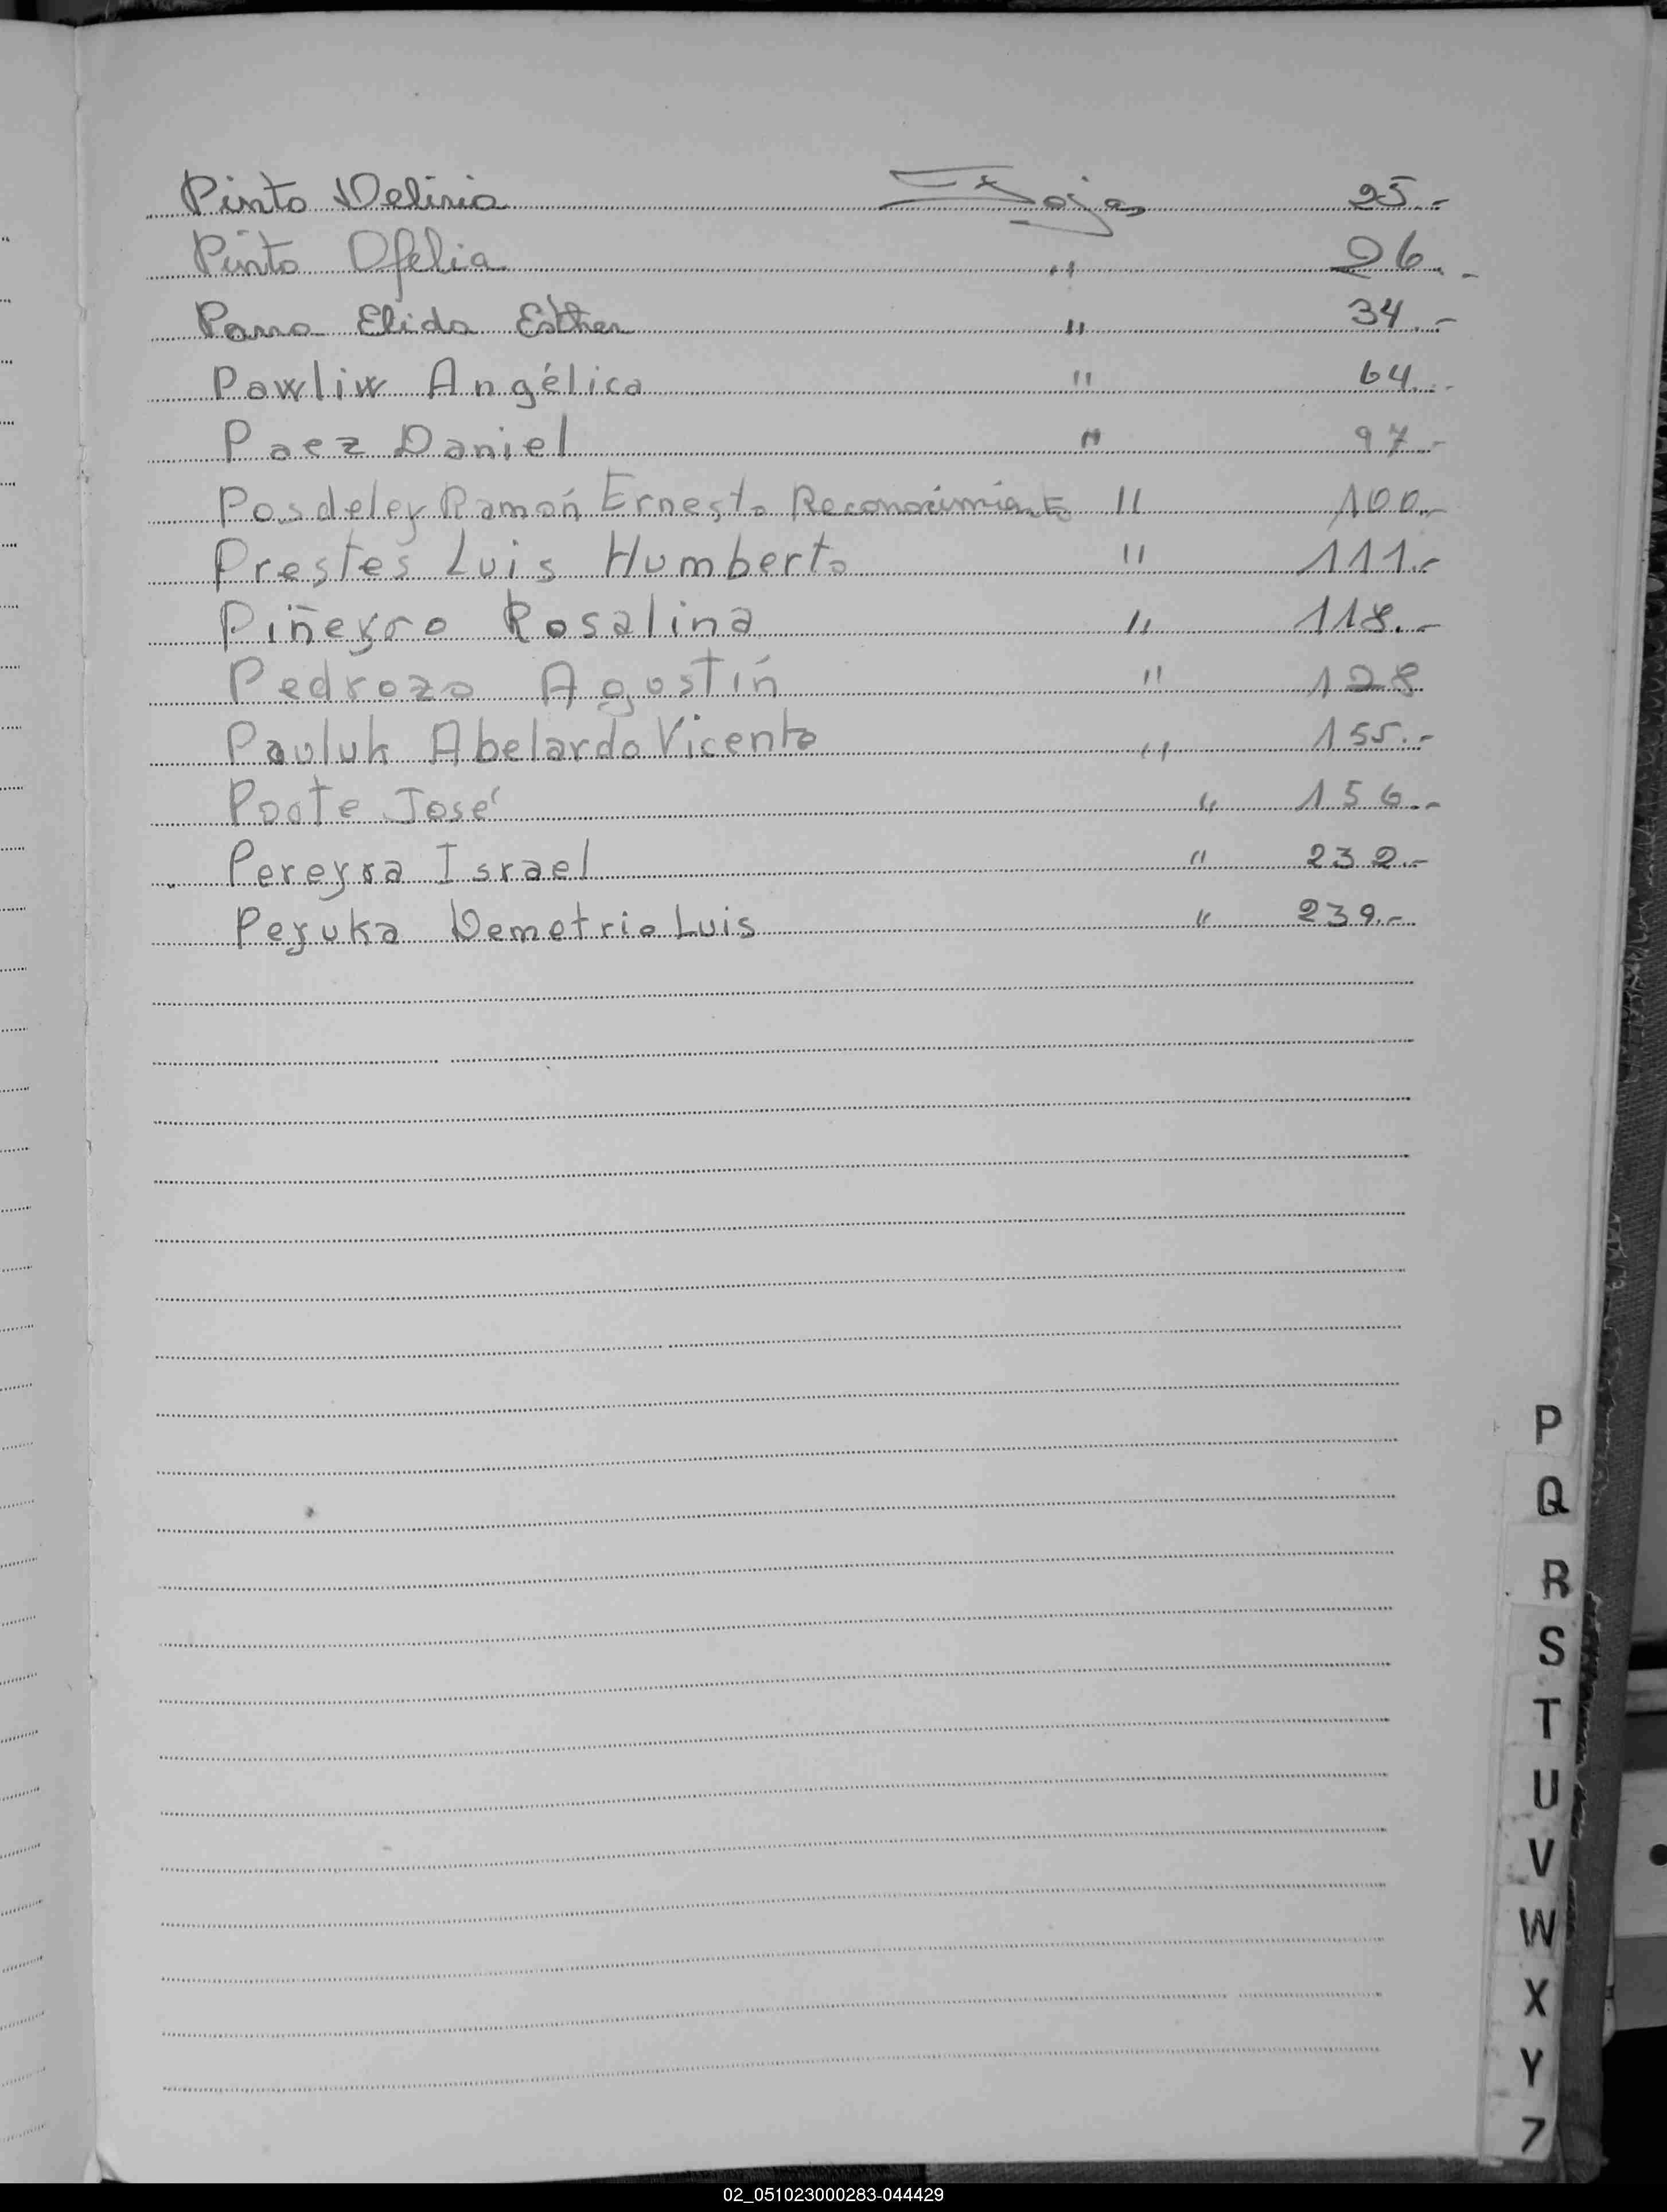 Pinto Deliria Fojas 25.-
Pinto Ofelia " 26.-
Parra Elida Esther " 34.-
Pawliw Angélica " 64.-
Paez Daniel " 97.-
Posdeley Ramón Ernesto Reconocimiento " 100.-
Prestes Luis Humberto " 111.-
Piñeyro Rosalina " 118.-
Pedrozo Agostín " 128
Pauluk Abelardo Vicente " 155.-
Poote José " 156.-
Pereyra Israel " 232.-
Peyuka Demetrio Luis " 239.-
P
Q
R
S
T
U
V
W
X
Y
Z
02_051023000283-044429